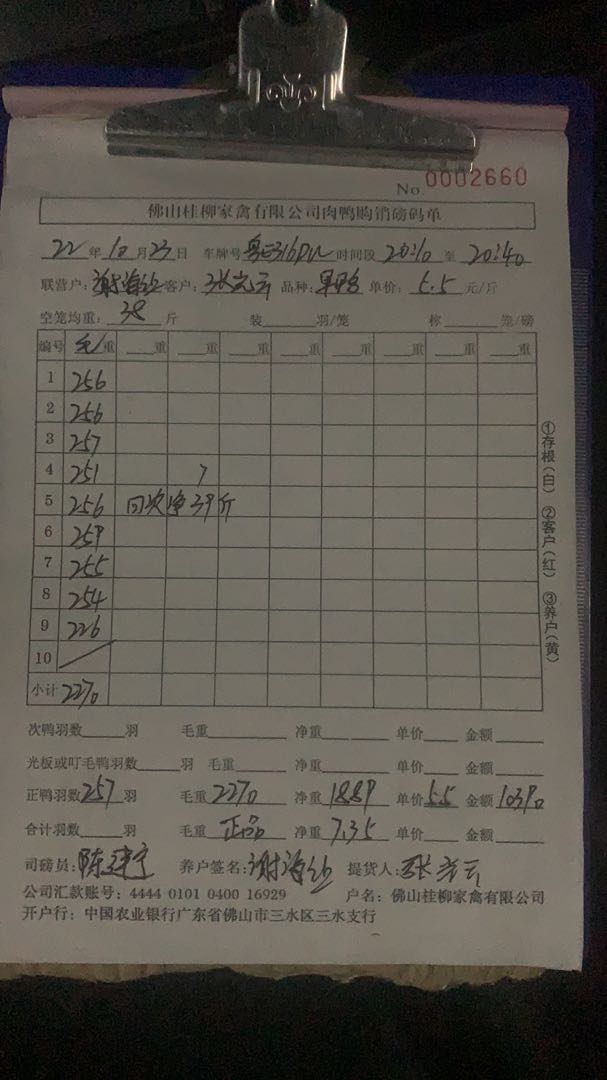 No. 0002660
佛山桂柳家禽有限公司肉鸭购销磅码单
22 年 10 月 23 日 车牌号 时间段 20:10 至 20:40
联营户: 客户: 品种: 单价: 5.5 元/斤
空笼均重: 38 斤 装 羽/笼 称 笼/磅
编号 毛重 重 重 重 重 重 重 重 重
1 256
2 256
3 257
4 251 7
5 256 回次净39斤
6 259
7 255
8 254
9 226
10
小计 2270
①存根(白) ②客户(红) ③养户(黄)
次鸭羽数 羽 毛重 净重 单价 金额
光板或叮毛鸭羽数 羽 毛重 净重 单价 金额
正鸭羽数 257 羽 毛重 2270 净重 1889 单价 5.5 金额 10390
合计羽数 羽 毛重 正品 净重 7.35 单价 金额
司磅员: 养户签名: 提货人:
公司汇款账号: 4444 0101 0400 16929 户名: 佛山桂柳家禽有限公司
开户行: 中国农业银行广东省佛山市三水区三水支行